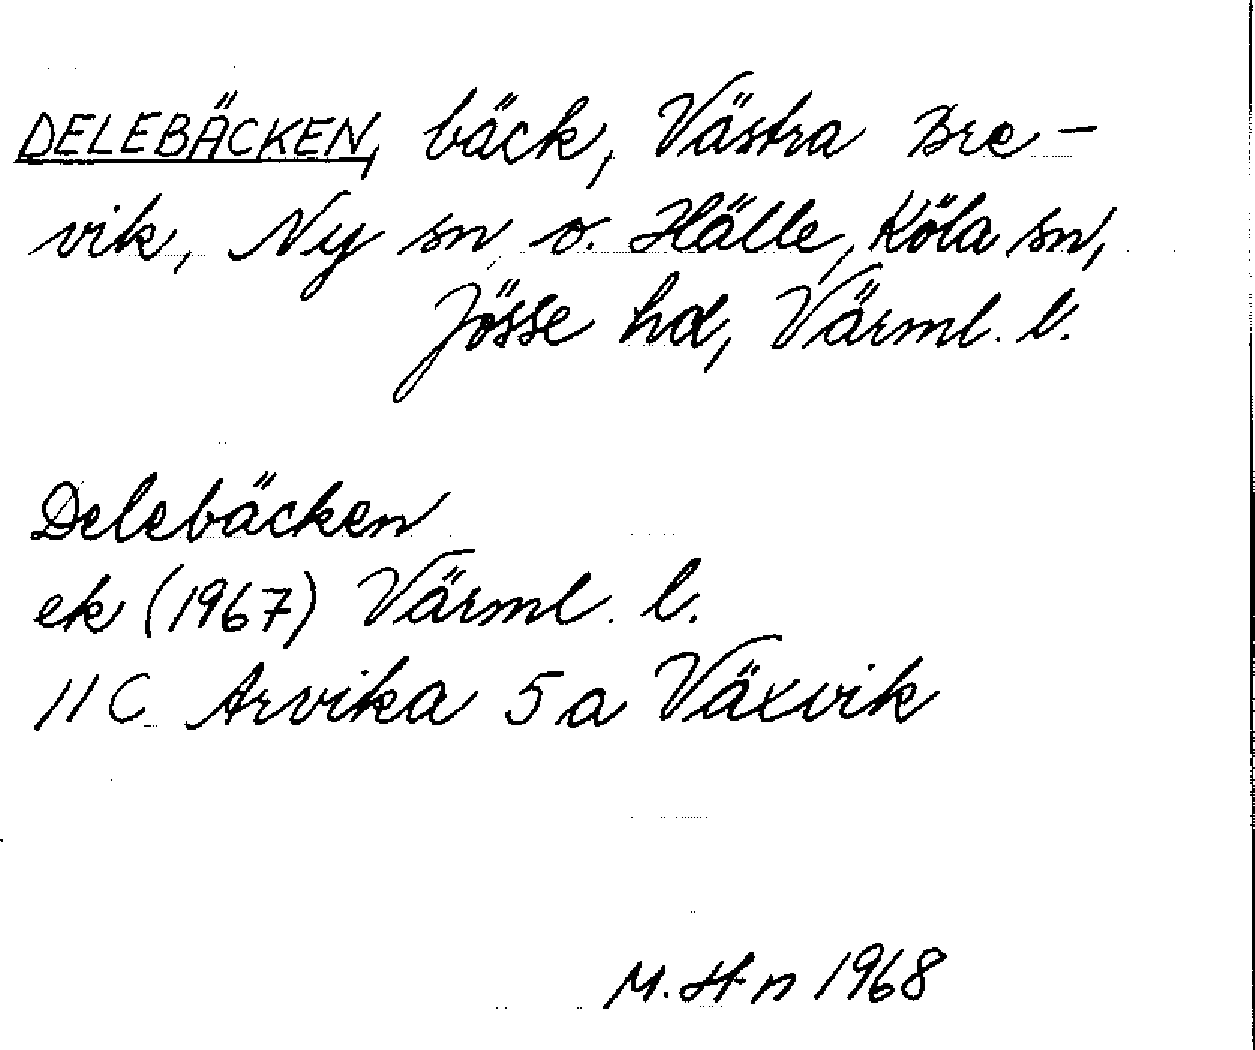 DELEBÄCKEN, bäck, Västra Bre-
vik, Ny sn o. Hälle, Köla sn,
Jösse hd, Värml. l.
Delebäcken
ek (1967) Värml. l.
11 C Arvika 5 a Växvik
M. H-n 1968